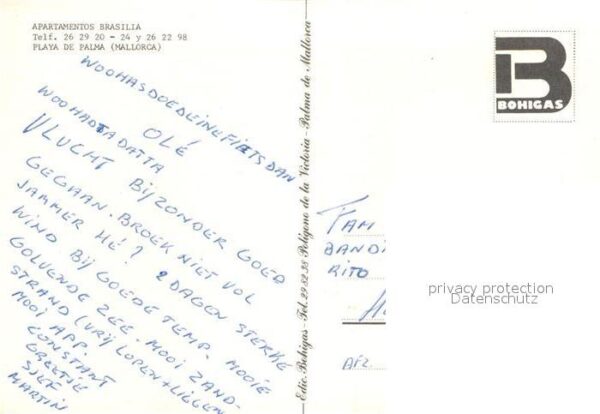 APARTAMENTOS BRASILIA
Telf. 26 29 20 - 24 y 26 22 98
PLAYA DE PALMA (MALLORCA)
WOOHASDOEDLEINEFIETSDAN
WOOHADTADATTA
OLÉ
VLUCHT BIJZONDER GOED
GEGAAN. BROEK NIET VOL
JAMMER HÉ? 2 DAGEN STERKE
WIND BIJ GOEDE TEMP. MOOIE
GOLVENDE ZEE. MOOI ZAND-
STRAND (VRIJ LOPEN + LIGGEN
MOOI APP.
CONSTANT
GREETJE
SJEF
MARTIN
Edic. Bohigas - Tel. 29.82.38 Polígono de la Victoria - Palma de Mallorca
B
BOHIGAS
FAM
BANDI
RITO
AFZ.
privacy protection
Datenschutz